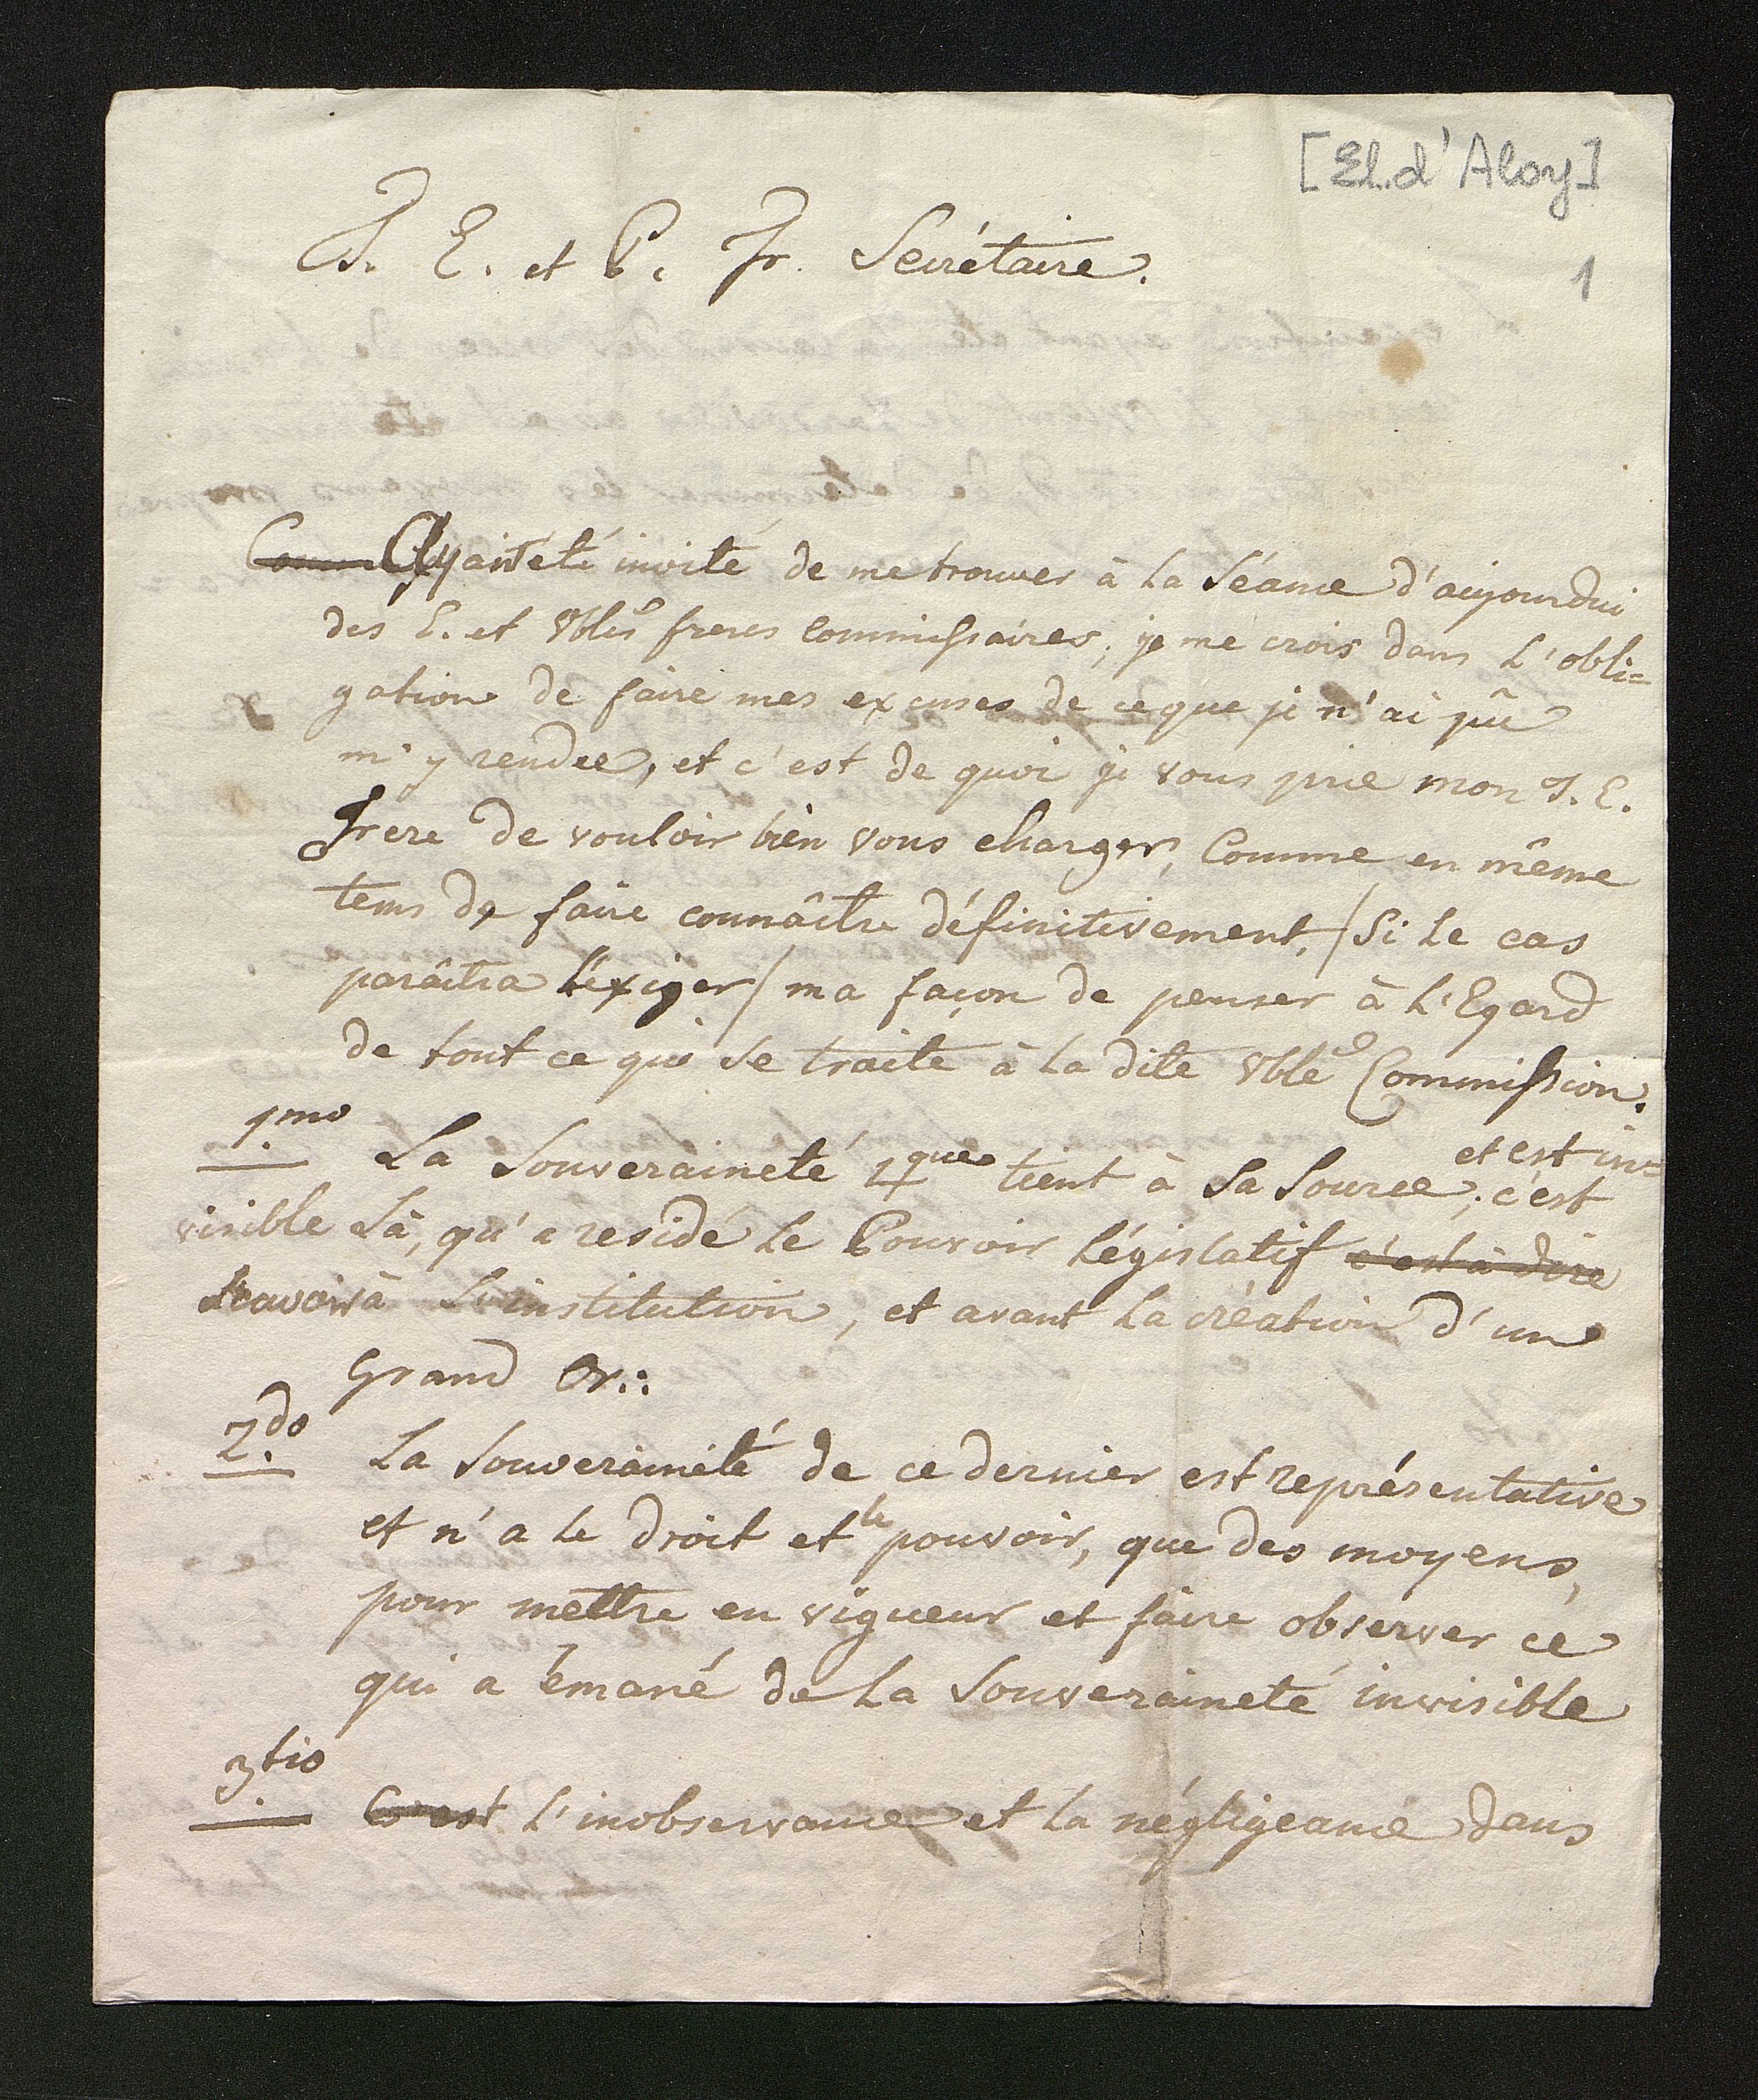 [El. d'Aloy]
T. E. et P. Fr. Secrétaire.
1
Comme Ayant été invité de me trouver à la Séance d'aujourdui
des E. et Vbles freres Commissaires, je me crois dans l'obli=
gation de faire mes excuses de ceque je n'ai pû
m'y rendre, et c'est de quoi je vous prie mon T. E.
Frere de vouloir bien vous charger, Comme en même
tems de faire connaître définitivement, /Si le cas
paraîtra l'exiger/ ma façon de penser à l'Egard
de tout ce qui se traite à la dite Vble Commission.
1mo La Souveraineté tient à Sa Source, et est in=
visible c'est là, qu'a residé le Pouvoir législatif c'est à dire
Sçavoir à L'institution, et avant la création d'un
Grand Or.:
2do La Souveraineté de ce dernier est représentative
et n'a le droit et le pouvoir, que des moyens,
pour mettre en vigueur et faire observer ce
qui a émané de la Souveraineté invisible
3tio C'est l'inobservance et la négligeance dans